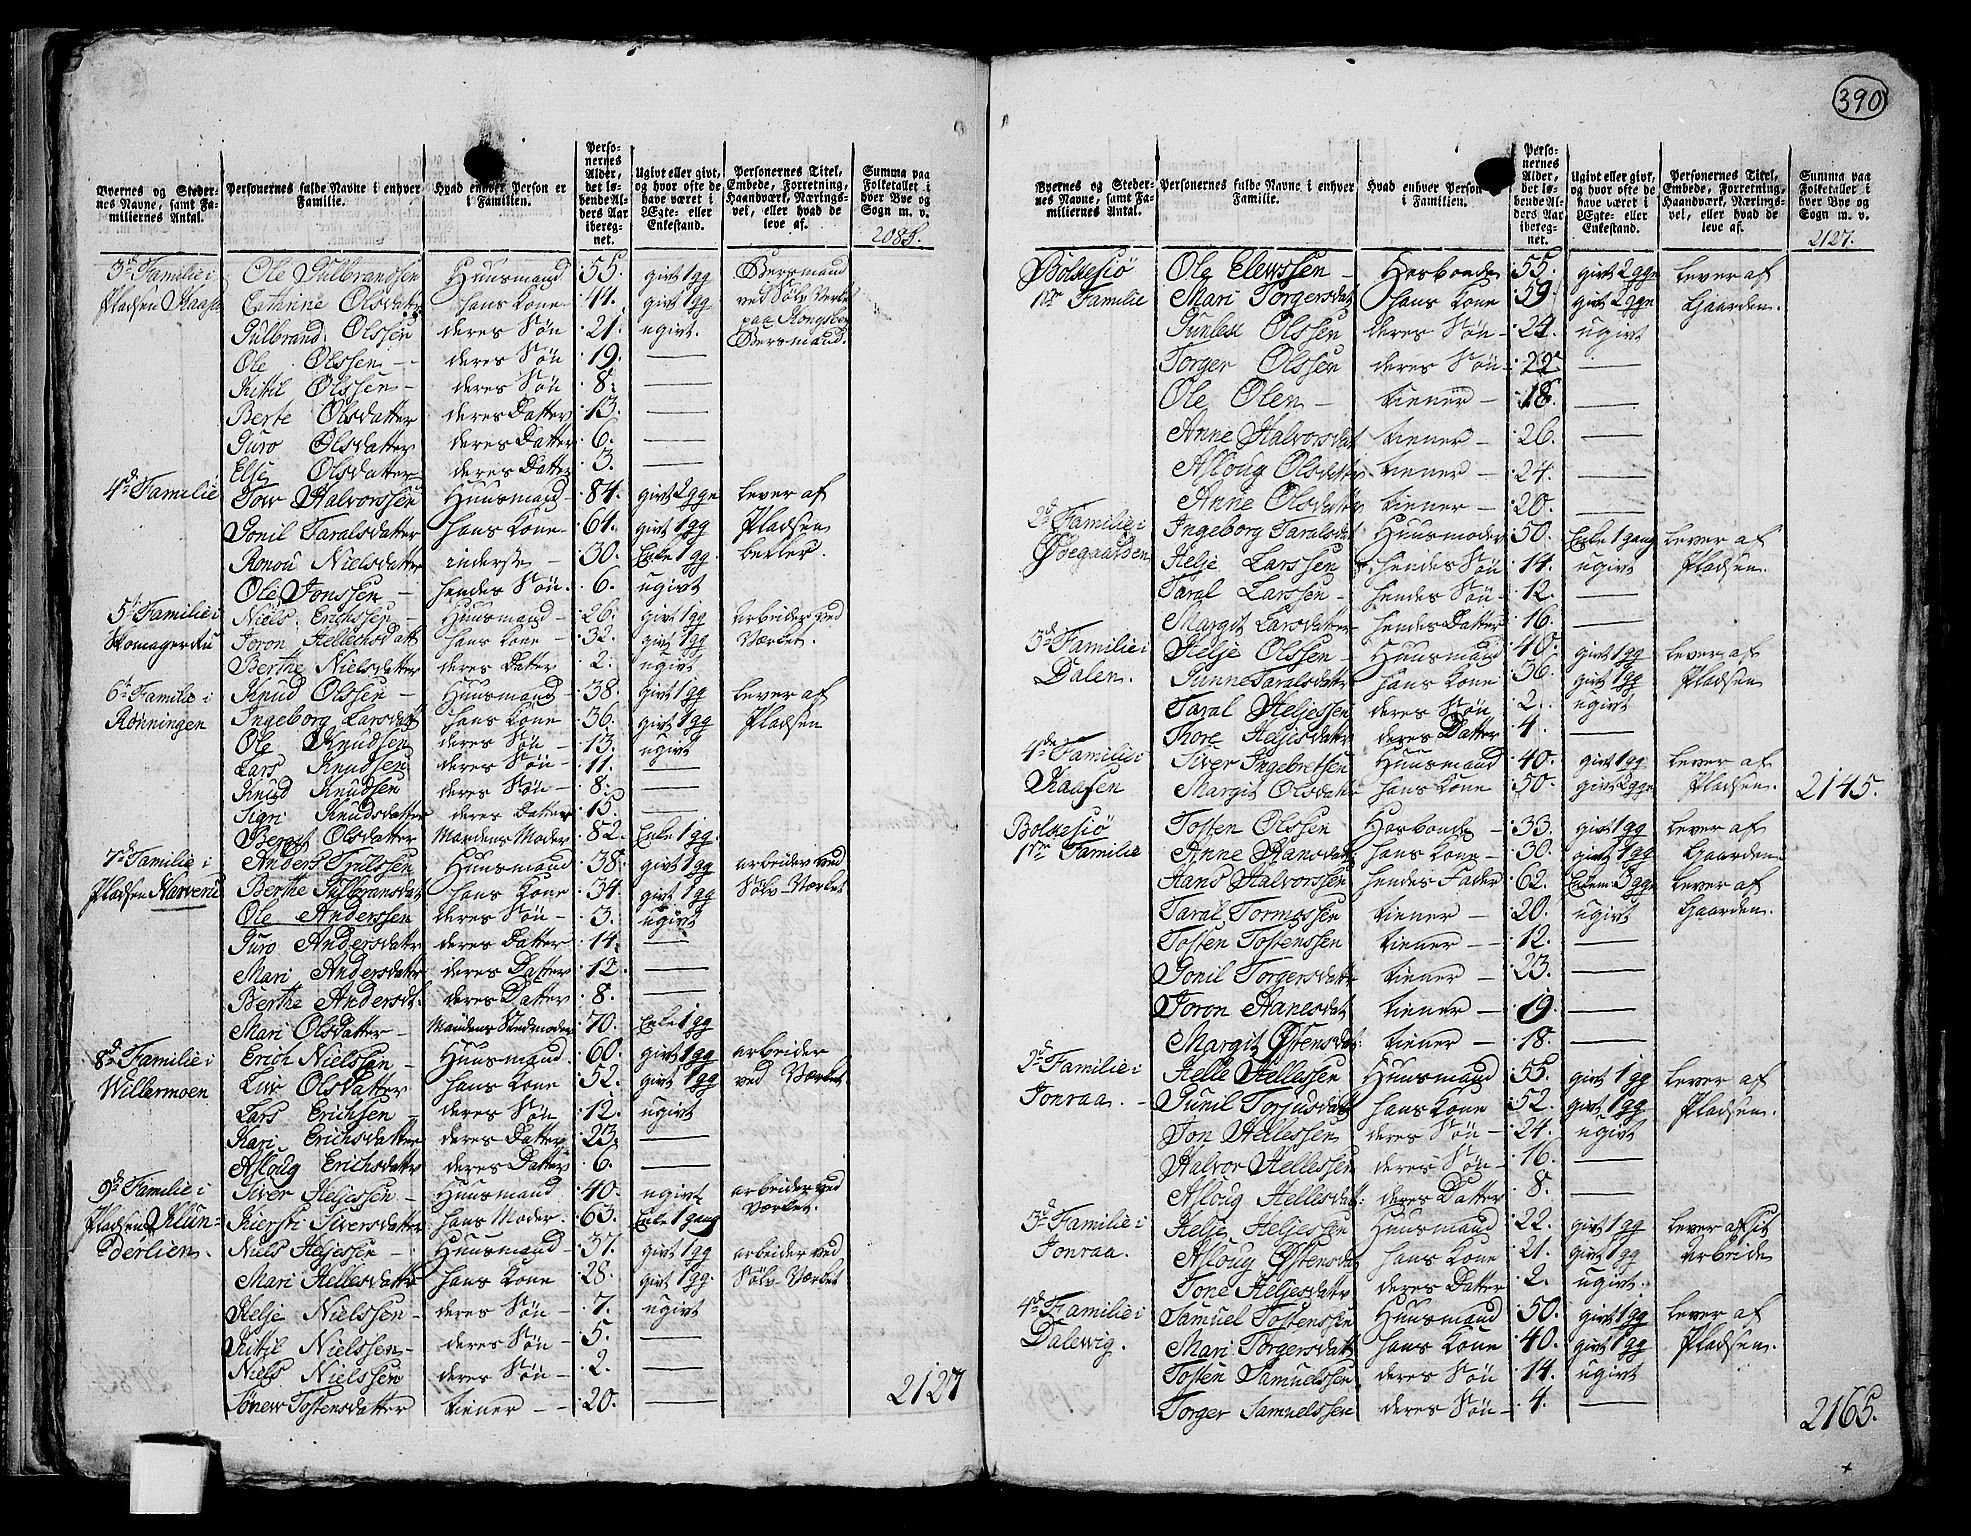 390
Byernes og Steder- nes Navne, samt Fa- miliernes Antal. | Personernes fulde Navne i enhver Familie. | Hvad enhver Person er i Familien. | Perso- nernes Alder, det lø- bende Al- ders Aar iberegnet. | Ugivt eller givt, og hvor ofte de have været i Ægte- eller Enkestand. | Personernes Titel, Embede, Forretning, Haandværk, Nærings- vei, eller hvad de leve af. | Summa paa Folketallet i hver Bye og Sogn m. v.
2085.
3d Familie i | Ole Gulbrandsen | Huusmand | 55. | givt 1 gg | Bersmand
Pladsen | Cathrine Olsdatter | hans Kone | 44. | givt 1 gg | ved Sølv Verket
Gulbrand Olssen | deres Søn | 21. | ugivt. | paa Kongsberg
Ole Olssen | deres Søn | 19. | — | Bersmand.
Kittil Olssen | deres Søn | 8. | —
Berte Olsdatter | deres Datter | 13. | —
Guro Olsdatter | deres Datter | 6. | —
Else Olsdatter | deres Datter | 3. | —
4d Familie | Tow Halvorssen | Huusmand | 84. | givt 2 gge | lever af
Gonil Taralsdatter | hans Kone | 64. | givt 1 gg | Pladsen
Ronou Nielsdatter | inderste | 30. | Enke 1 gg. | betler.
Ole Jonssen | hendes Søn | 6. | ugivt
5t Familie i | Niels Erichssen | Huusmand | 26. | givt 1 gg | arbeider ved
Joron Hellechsdatt | hans Kone | 32. | givt 1 gg | Værket.
Berthe Nielsdatter | deres Datter | 2. | ugivt
6t Familie i | Knud Olssen | Huusmand | 38. | givt 1 gg | lever af
Rønningen | Ingeborg Larsdatt | hans Kone | 36. | givt 1 gg | Pladsen
Ole Knudsen | deres Søn | 13. | ugivt
Lars Knudsen | deres Søn | 11. | —
Knud Knudsen | deres Søn | 8. | —
Sigri Knudsdatter | deres Datter | 15. | —
Berget Olsdatter | Mandens Moder | 82. | Enke 1 gg.
7d Familie i | Anders Truilssen | Huusmand | 38. | givt 1 gg | arbeider ved
Pladsen Narverud | Berthe Gulbransdat | hans Kone | 34. | givt 1 gg | Sølv-Værket
Ole Anderssen | deres Søn | 3. | ugivt
Guro Andersdattr | deres Datter | 14. | —
Mari Andersdattr | deres Datter | 12. | —
Berthe Andersdt. | deres Datter | 8. | —
Mari Olsdatter | Mandens Stedmoder | 70. | Enke 1 gg
8d Familie i | Erich Nielssen | Huusmand | 60. | givt 1 gg | arbeider
Willermoen | Liv Olsdatter | hans Kone | 52. | givt 1 gg | ved Værket
Lars Erichsen | deres Søn | 12. | ugivt
Kari Erichsdatter | deres Datter | 23. | —
Asloug Erichsdattr | deres Datter | 6. | —
9d Familie i | Siver Heljessen | Huusmand | 40. | ugivt | arbeider ved
Pladsen Klun- | Kiersti Siversdatter | hans Moder. | 63. | Enke 1 gang | Værket.
derlien. | Niels Heljessen | Huusmand | 37. | givt 1 gg | arbeider ved
Mari Hellesdattr | hans Kone | 28. | givt 1 gg. | Sølv-Værket
Helje Nielssen | deres Søn | 7. | ugivt
Kittil Nielssen | deres Søn | 5. | —
Niels Nielssen | deres Søn | 2. | —
Tostensdatter | tiener | 20. | — | 2127
Byernes og Steder- nes Navne, samt Fa- miliernes Antal. | Personernes fulde Navne i enhver Familie. | Hvad enhver Person i Familien. | Perso- nernes Alder, det lø- bende Al- ders Aar iberegnet. | Ugivt eller givt, og hvor ofte de have været i Ægte- eller Enkestand. | Personernes Titel, Embede, Forretning, Haandværk, Nærings- vei, eller hvad de leve af. | Summa paa Folketallet i hver Bye og Sogn m. v.
2127.
Bolkesiø | Ole Elewssen | Hosbonde | 55. | givt 2 gge | lever af
1ste Familie | Mari Torgersdat | hans Kone | 59. | givt 2 gge | Gaarden.
Gunleu Olssen | deres Søn | 24. | ugivt
Torger Olssen | deres Søn | 22. | —
Ole Olen | tiener | 18. | —
Anne Halvorsdat | tiener | 26. | —
Asloug Olsdatter | tiener | 24. | —
Anne Olsdatter | tiener | 20. | —
2d Familie i | Ingeborg Taralsdat | Huusmoder | 50. | Enke 1 gang | lever af
Ødegaarden | Helje Larssen | hendes Søn | 14. | ugivt | Pladsen.
Taral Larssen | hendes Søn | 12. | —
Margit Larsdatter | hendes Datter | 16. | —
3d Familie i | Helje Olssen | Huusmand | 40. | givt 1 gg | lever af
Dalen. | Gunne Taralsdattr | hans Kone | 36. | givt 1 gg | Pladsen
Taral Heljessen | deres Søn | 2. | ugivt
Tore Heljesdattr | deres Datter | 4. | —
4de Familie i | Siver Ingebretsen | Huusmand | 40. | givt 1 gg | lever af
Margit Olsdatt | hans Kone | 50. | givt 2 gge | Pladsen. | 2145.
Bolkesiø | Tosten Olssen | Hosbonde | 33. | givt 1 gg | lever af
1ste Familie | Anne Hansdatt | hans Kone | 30. | givt 1 gg | Gaarden
Hans Halvorssen | hendes Fader | 62. | Enkem. 3 gge | lever af
Taral Tormossen | tiener | 20. | ugivt | Gaarden.
Tosten Tostenssen | tiener | 12. | —
Gonil Torgersdattr | tiener | 23. | —
Joron Hanesdat | tiener | 19. | —
Margit Østensdat: | tiener | 18. | —
2d Familie i | Helle Hellessen | Huusmand | 55. | givt 1 gg | lever af
Jonraa. | Gunil Torjusdatt | hans Kone | 52. | givt 1 gg | Pladsen.
Jon Hellessen | deres Søn | 24. | ugivt
Halvor Hellessen | deres Søn | 16. | —
Asloug Hellesdatt: | deres Datter | 8. | —
3d Familie i | Helje Heljessen | Huusmand | 22. | givt 1 gg | lever af sit
Jonraa. | Asloug Østensdat | hans Kone | 21. | givt 1 gg | Arbeide
Tone Heljesdattr | deres Datter | 2. | ugivt.
4de Familie i | Samuel Tostenssen | Huusmand | 50. | givt 1 gg | lever af
Dalewig. | Mari Torgersdatt | hans Kone | 40. | givt 1 gg | Pladsen.
Tosten Samuelssen | deres Søn | 14. | ugivt
Torger Samuelssen | deres Søn | 4. | — | 2165.